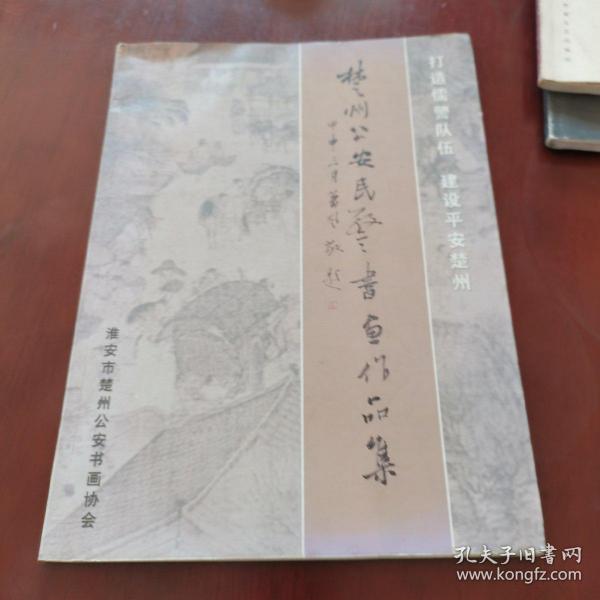 打造儒警队伍 建设平安楚州
楚州公安民警书画作品集
甲申三月
敬题
淮安市楚州公安书画协会
孔夫子旧书网
www.kongfz.com